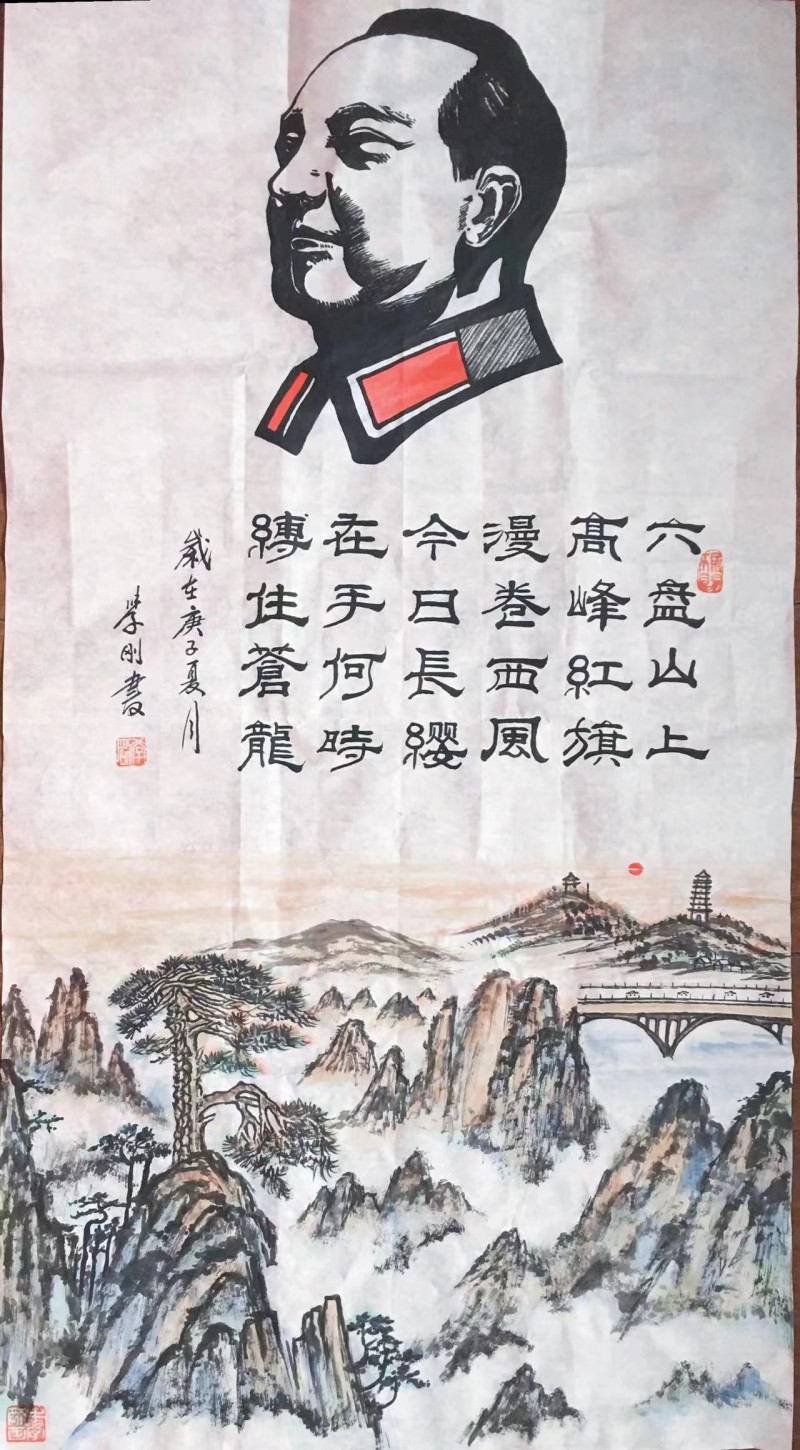 六盘山上
髙峰紅旗
漫卷西風
今日長缨
在手何時
縛住蒼龍
歲在庚子夏月
學刚書